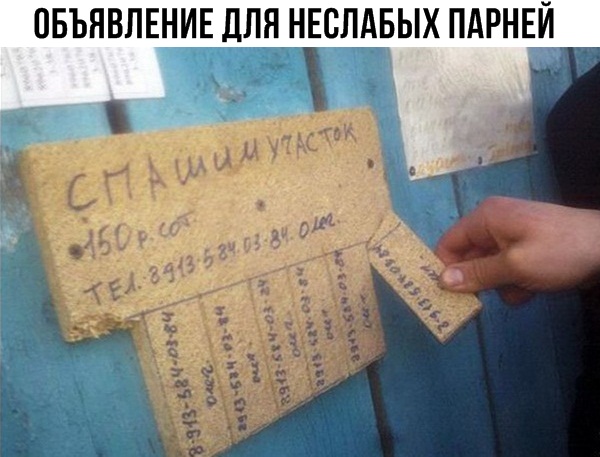 ОБЪЯВЛЕНИЕ ДЛЯ НЕСЛАБЫХ ПАРНЕЙ
СПАШИМ УЧАСТОК
150 р. сот.
ТЕЛ. 8913-584-03-84. Олег.
8-913-584-03-84
Олег.
8913-584-03-84
Олег.
8913-584-03-84
Олег.
8913-584-03-84
Олег.
8913-584-03-84
Олег.